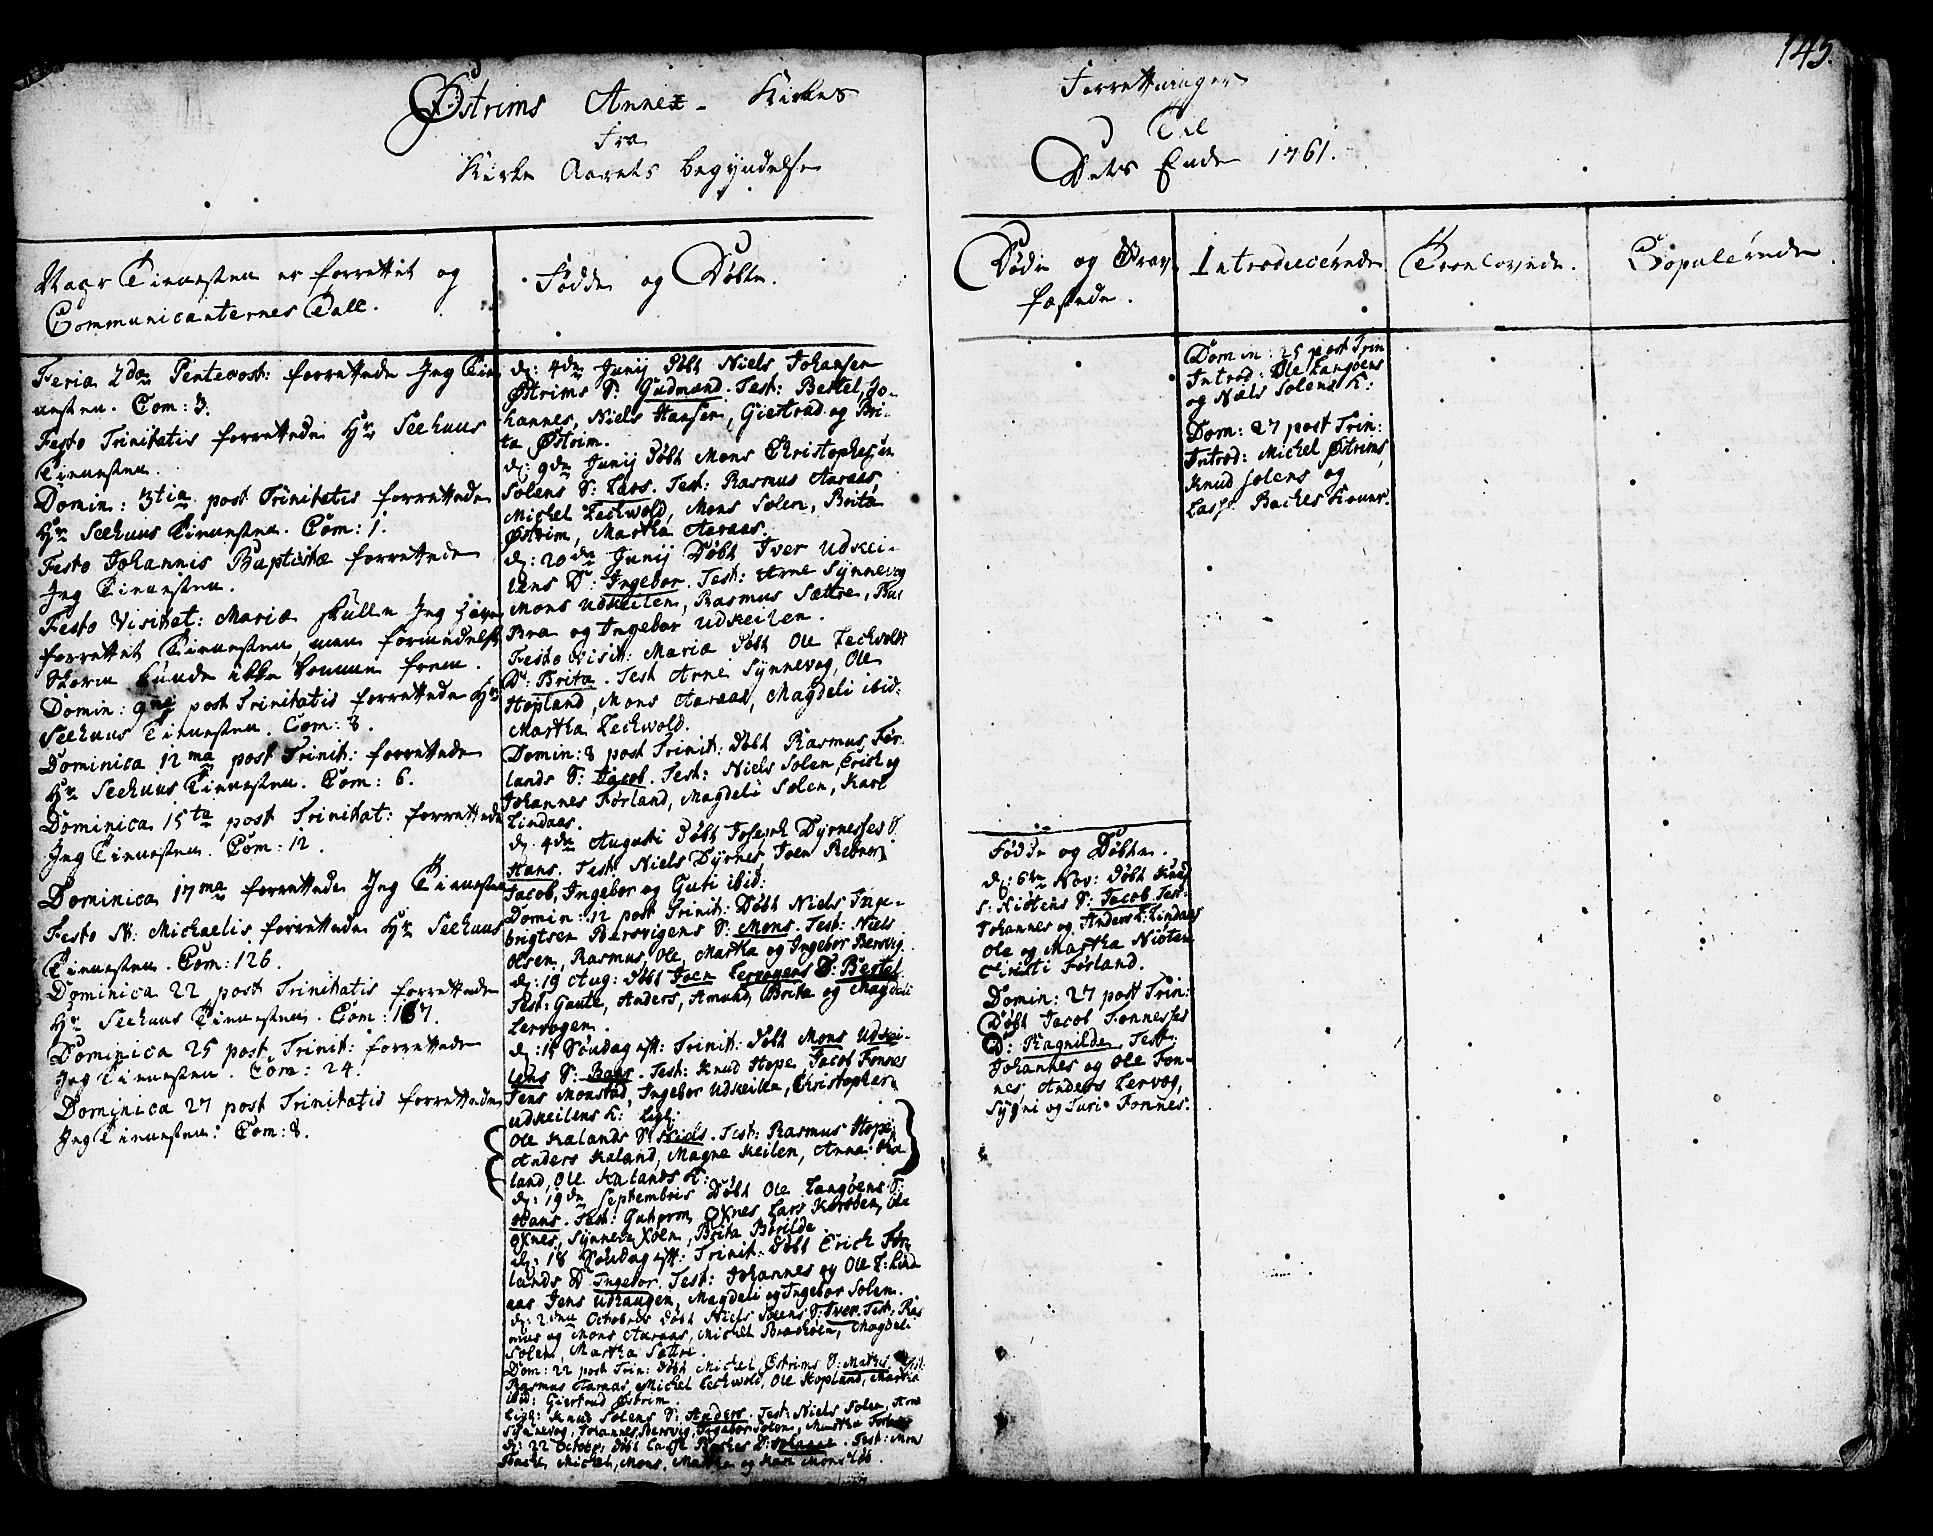 145.
Østrims Annex - Kirkes
Forrettninger
fra
Til
Kirke Aarets begyndelse
Dets Ende 1761.
Naar Tienesten er forrettet og
Communicanternes Tall.
Fødde og Døbte.
Døde og Grav
fæstede.
Introducerede
Troelovede.
Copulerede.
Feria 2da Pentecost: forrettede Jeg Tie
nesten. Com: 3.
Festo Trinitatis forrettede Hr Seehuus
Tienesten.
Domin: 3tia post Trinitatis forrettede
Hr Seehuus Tienesten. Com: 1.
Festo Johannis Baptistæ forrettede
Jeg Tienesten.
Festo Visitat: Mariæ skulle Jeg have
forrettet Tienesten, men formedelst
Storm kunde ikke komme frem.
Domin: 9na post Trinitatis forrettede Hr
Seehuus Tienesten. Com: 8.
Dominica 12ma post Trinit: forrettede
Hr Seehuus Tienesten. Com: 6.
Dominica 15ta post Trinitat: forrettede
Jeg Tienesten. Com: 12.
Dominica 17ma forrettede Jeg Tienesten
Festo St: Michaelis forrettede Hr Seehuus
Tienesten. Com: 126.
Dominica 22 post Trinitatis forrettede
Hr Seehuus Tienesten. Com: 167.
Dominica 25 post Trinit: forrettede
Jeg Tienesten. Com: 24.
Dominica 27 post Trinitatis forrettede
Jeg Tienesten: Com: 8.
d: 4de Junij Døbt Niels Johansen
Østrims S: Gudmund. Test: Bestel, Jo-
hannes, Niels Hansen, Giertrud og Bri-
ta Østrim.
d: 9de Junij Døbt Mons Christophersen
Solens S: Lars. Test: Rasmus Aaraas,
Michel Techwold, Mons Solen, Brita
Østrim, Martha Aaraas.
d: 20de Junij Døbt Iver Udkei-
lens D: Ingebor. Test: Arne Synnevog
Mons Udkeilen, Rasmus Sættre, Bar
Bra og Ingebor Udkeilen.
Festo visit: Mariæ Døbt Ole Techvolds
D: Brita. Test Arne Synnevog, Ole
Hopland, Mons Aaraas, Magdeli ibid:
Martha Techwold.
Domin: 8 post Trinit: Døbt Rasmus Før
lands S: Jacob. Test: Niels Solen, Erich og
Johannes Førland, Magdeli Solen, Kari
Lindaas.
d: 4de Augusti Døbt Joseph Dyrnesses S
Hans. Test: Niels Dyrnes, Joen Rebnor
Jacob, Ingebor og Guri ibid:
Domin: 12 post Trinit: Døbt Niels Inge-
brigtsen Bersvigens S: Mons. Test: Niels
Olsen, Rasmus, Ole, Martha og Ingebor Bersvig.
d: 19 Aug: Døbt Joen Lervogens D: Bestel
Test: Gaute, Anders, Amund, Brita og Magdeli
Lervogen.
d: 15 Søndag eft: Trinit: Døbt Mons Udkei-
lens S: Baars. Test: Knud Hope, Jacob Fonnes
Jens Monstad, Ingebor Udkeilen, Christopher
Udkeilens K: Ligl:
Ole Kalands S: Niels. Test: Rasmus Hope,
Anders Kaland, Magne Keilen, Anna Ka
land, Ole Kalands K:
d: 19de Septembris Døbt Ole Langøens S:
Hans. Test: Gutorm Oxnes Lars Korsøen, Ole
Oxnes, Synneva Xoen, Brita Borilde
d: 18 Søndag eft: Trinit: Døbt Erich Før
lands D Ingebor. Test: Johannes og Ole L: Lind
aas Jens Udhaugen, Magdeli og Ingebor Solem.
d: 2den Octobris Døbt Niels Solens S: Iver. Test: Ras
mus og Mons Aaraas, Michel, Magdeli
Solen, Martha Sættre.
Dom: 22 post Trin: Døbt Michel Østrims S: Mathis. Test:
Rasmus Aaraas, Michel Techwold, Ole Hopland, Martha
ibid: Giertrud Østrim.
Ligl: Knud Solens S: Anders. Test: Niels Solen, Arne
Synnevog, Johannes Bersvig, Ingebor Solen, Martha
d: 22 Octobr: Døbt Lasse Baches D: Test: Mons
Bache, Michel, Mons, Martha og Kari
Domin: 25 post Trin
Introd: Ole Langøens
og Niels Solens K:
Dom: 27 post Trin:
Introd: Michel Østrims
Knud Solens og
Lasse Baches Koner.
Fødde og Døbte.
d: 6te Nov: Døbt Knud
S: Kiøtens S: Jacob Test:
Johannes og Anders L: Lindaas
Ole og Martha Niøten
Cirsti Førland.
Domin: 27 post Trin:
Døbt Jacob Fonnesses
D: Ragnilde. Test:
Johannes og Ole Fon-
nes, Anders Lervog,
Sygni og Turi Fonnes.